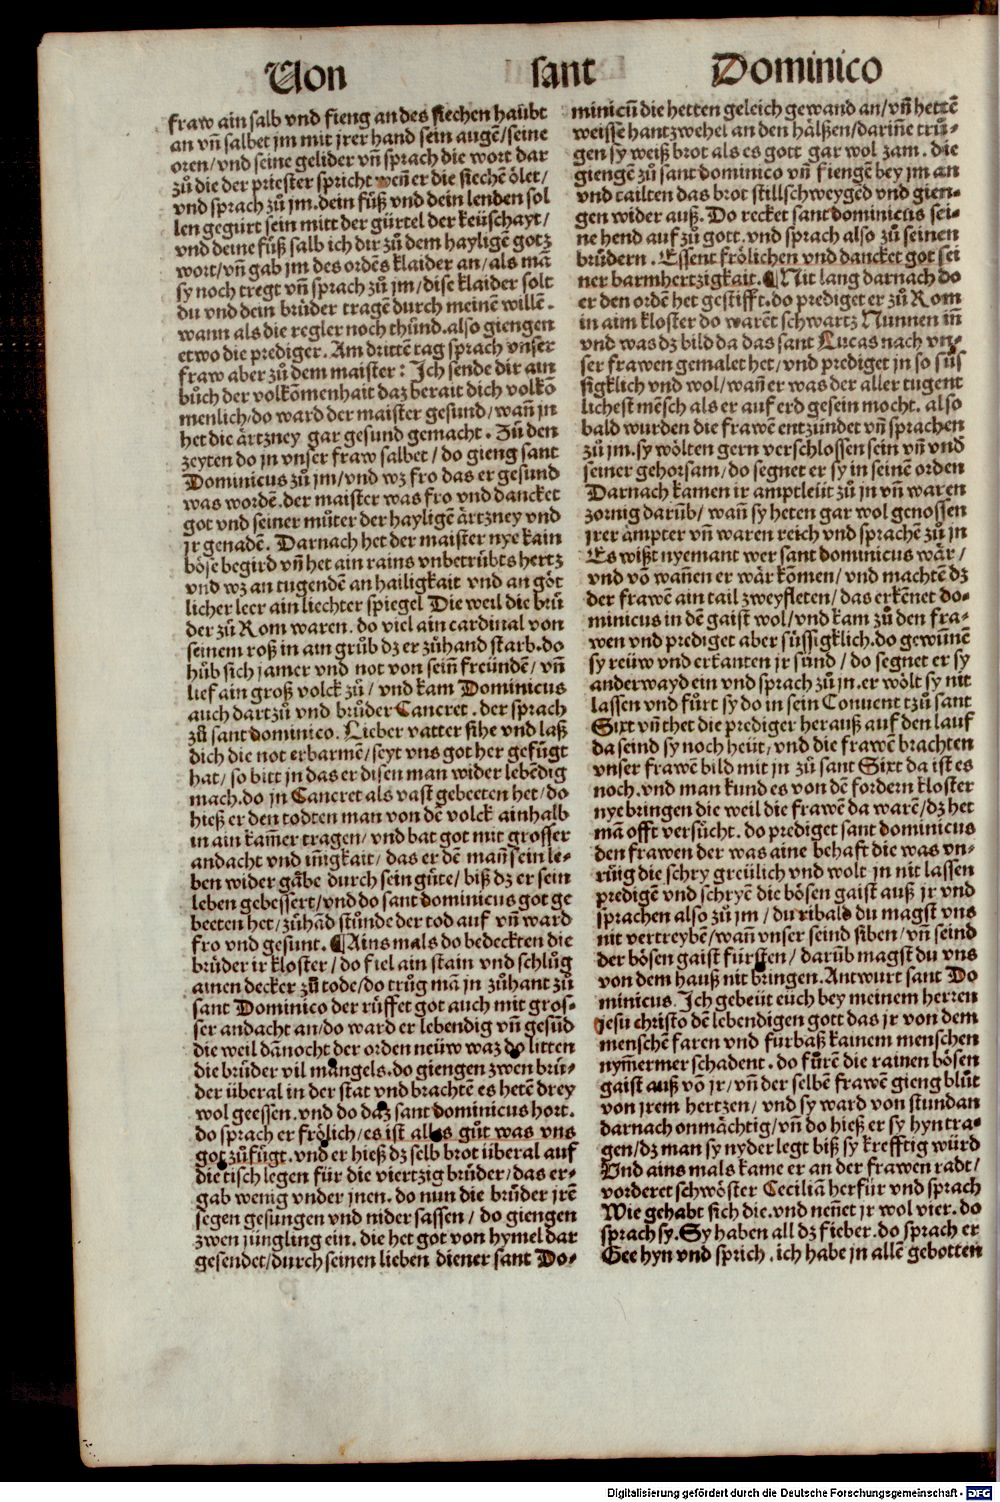 Uon sant Dominico
fraw ain salb vnd fieng an des siechen haubt
an vñ salbet jm mit jrer hand sein augẽ/seine
oren/vnd seine gelider vñ sprach die wort dar
zů die der priester spricht weñ er die siechẽ ölet/
vnd sprach zů jm.dein fůß vnd dein lenden sol
len gegürt sein mitt der gürtel der keüschayt/
vnd deine fůß salb ich dir zů dem hayligẽ gotz
wort/vñ gab jm des ordẽs klaider an/als mã
sy noch tregt vñ sprach zů jm/dise klaider solt
du vnd dein brüder tragẽ durch meinẽ willẽ.
wann als die regler noch thůnd.also giengen
etwo die prediger. Am drittẽ tag sprach vnser
fraw aber zů dem maister: Ich sende dir ain
bůch der volkõmenhait daz berait dich volkõ
menlich/do ward der maister gesund/wañ jn
het die ärtzney gar gesund gemacht. Zů den
zeyten do jn vnser fraw salbet/do gieng sant
Dominicus zů jm/vnd wz fro das er gesund
was wordẽ.der maister was fro vnd dancket
got vnd seiner můter der hayligẽ ärtzney vnd
jr genadẽ. Darnach het der maister nye kain
böse begird vñ het ain rains vnbetrübts hertz
vnd wz an tugendẽ an hailigkait vnd an göt
licher leer ain liechter spiegel Die weil die brü
der zů Rom waren. do viel ain cardinal von
seinem roß in ain grůb dz er zůhand starb.do
hůb sich jamer vnd not von seiñ freündẽ/vñ
lief ain groß volck zů/vnd kam Dominicus
auch dartzů vnd brůder Cancret. der sprach
zů sant dominico. Lieber vatter sihe vnd laß
dich die not erbarmẽ/seyt vns got her gefügt
hat/so bitt jn das er disen man wider lebẽdig
mach.do jn Cancret als vast gebeeten het/do
hieß er den todten man von dẽ volck ainhalb
in ain kam̃er tragen/vnd bat got mit grosser
andacht vnd iñigkait/das er dẽ mañ sein le-
ben wider gãbe durch sein güte/biß dz er sein
leben gebessert/vnd do sant dominicus got ge
beeten het/zůhãd stůnde der tod auf vñ ward
fro vnd gesunt. ¶Ains mals do bedeckten die
brüder ir kloster/do fiel ain stain vnd schlůg
ainen decker zů tode/do trůg mã jn zůhant zů
sant Dominico der růffet got auch mit gros-
ser andacht an/do ward er lebendig vñ gesũd
die weil dãnocht der orden neüw waz do litten
die brüder vil mangels.do giengen zwen brü-
der überal in der stat vnd brachtẽ es hetẽ drey
wol geessen.vnd do daz sant dominicus hort.
do sprach er frölich/es ist alles gůt was vns
got zůfügt.vnd er hieß dz selb brot überal auf
die tisch legen für die viertzig brüder/das er-
gab wenig vnder jnen.do nun die brüder jrẽ
segen gesungen vnd nider sassen/do giengen
zwen jüngling ein. die het got von hymel dar
gesendet/durch seinen lieben diener sant Do-
minicũ die hetten geleich gewand an/vñ hettẽ
weisse hantzwehel an den hälßen/dariñe trů-
gen sy weiß brot als es gott gar wol zam. die
giengẽ zů sant dominico vñ fiengẽ bey jm an
vnd tailten das brot stillschweygẽd vnd gien-
gen wider auß. Do recket sant dominicus sei-
ne hend auf zů gott.vnd sprach also zů seinen
brüdern. Essent frölichen vnd dancket got sei
ner barmhertzigkait.¶Nit lang darnach do
er den ordẽ het gestifft.do prediget er zů Rom
in aim kloster do warẽt schwartz Nunnen iñ
vnd was dz bild da das sant Lucas nach vn-
ser frawen gemalet het/vnd prediget jn so süs
sigklich vnd wol/wañ er was der aller tugent
lichest mẽsch als er auf erd gesein mocht. also
bald wurden die frawẽ entzündet vñ sprachen
zů jm.sy wölten gern verschlossen sein vñ vnd
seiner gehorsam/do segnet er sy in seinẽ orden
Darnach kamen ir amptleüt zů jn vñ waren
zornig darũb/wañ sy heten gar wol genossen
jrer ämpter vñ waren reich vnd sprachẽ zů jn
Es wißt nyemant wer sant dominicus wär/
vnd võ wañen er wär kõmen/vnd machtẽ dz
der frawẽ ain tail zweyfleten/das erkẽnet do-
minicus in dẽ gaist wol/vnd kam zů den fra-
wen vnd prediget aber süssigklich.do gewũnẽ
sy reüw vnd erkanten jr sünd/do segnet er sy
anderwayd ein vnd sprach zů jn.er wölt sy nit
lassen vnd fůrt sy do in sein Conuent tzů sant
Sixt vñ thet die prediger herauß auf den lauf
da seind sy noch heüt/vnd die frawẽ brachten
vnser frawẽ bild mit jn zů sant Sixt da ist es
noch.vnd man kund es von dẽ fordern kloster
nye bringen die weil die frawẽ da warẽ/dz het
mã offt versůcht. do prediget sant dominicus
den frawen der was aine behaft die was vn-
růig die schry greülich vnd wolt jn nit lassen
predigẽ vnd schryẽ die bösen gaist auß jr vnd
sprachen also zů jm/du ribald du magst vns
nit vertreybẽ/wañ vnser seind siben/vñ seind
der bösen gaist fürsten/darũb magst du vns
von dem hauß nit bringen.Antwurt sant Do
minicus. Ich gebeüt eüch bey meinem herren
jesu christo dẽ lebendigen gott das jr von dem
menschẽ faren vnd fürbaß kainem menschen
nym̃ermer schadent. do fůrẽ die rainen bösen
gaist auß võ jr/vñ der selbẽ frawẽ gieng blůt
von jrem hertzen/vnd sy ward von stundan
darnach onmächtig/vñ do hieß er sy hyn tra-
gen/dz man sy nyder legt biß sy krefftig würd
Vnd ains mals kame er an der frawen radt/
vorderet schwöster Ceciliã herfür vnd sprach
Wie gehabt sich die.vnd neñet jr wol vier.do
sprach sy.Sy haben all dz fieber.do sprach er
Gee hyn vnd sprich.ich habe jn allẽ gebotten
Digitalisierung gefördert durch die Deutsche Forschungsgemeinschaft - DFG